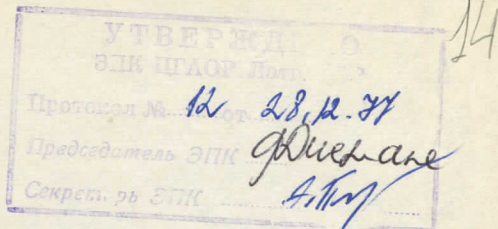 14
УТВЕРЖДЕНО
ЭПК ЦГАОР Латв.
Протокол № 12 от 28.12.77
Председатель ЭПК
Секретарь ЭПК